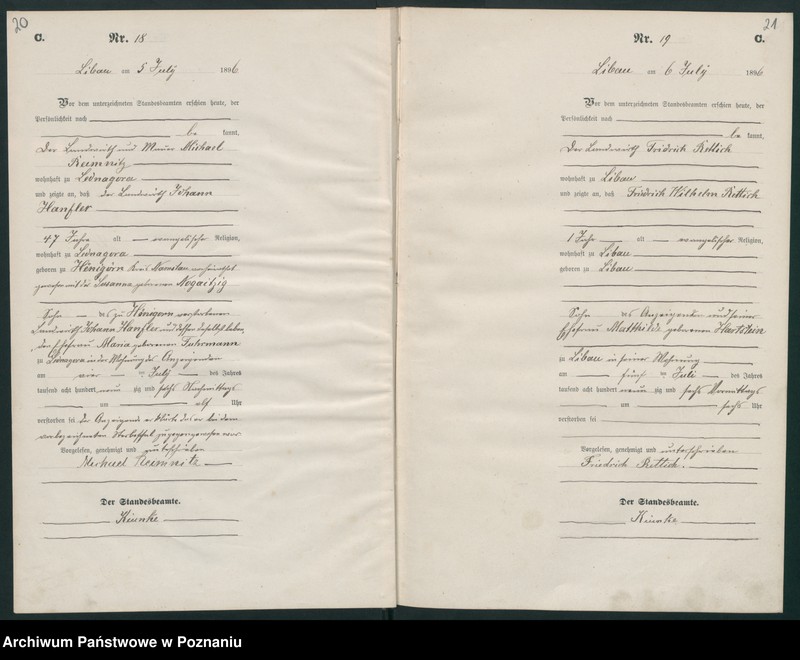 20
C.
Nr. 18
Libau am 5 July 1896
Vor dem unterzeichneten Standesbeamten erschien heute, der
Persönlichkeit nach
be kannt,
Der Landwirth und Michael
Reimnitz
wohnhaft zu Lednagora
und zeigte an, daß der Landwirth Johann
Hanfler
47 Jahre alt evangelischer Religion,
wohnhaft zu Lednagora
geboren zu Hönigern Kreis Namslau verheirathet
gewesen mit der Susanna geborenen Nogaitzig
Sohn des zu Hönigern verstorbenen
Landwirth Johann Hanfler und dessen daselbst
Ehefrau Maria geborenen Fuhrmann
zu Lednagora in der Wohnung des Anzeigenden
am vier ten July des Jahres
tausend acht hundert neun zig und sechs Nachmittags
um elf Uhr
verstorben sei der Anzeigende erklärte daß er bei dem
vorbezeichneten Sterbefall zugegen gewesen
Vorgelesen, genehmigt und unterschrieben
Michael Reimnitz
Der Standesbeamte.
Kiunke
21
Nr. 19
C.
Libau am 6 July 1896
Vor dem unterzeichneten Standesbeamten erschien heute, der
Persönlichkeit nach
be kannt,
Der Landwirth Fridrich Rettich
wohnhaft zu Libau
und zeigte an, daß Friedrich Wilhelm Rettich
1 Jahr alt evangelischer Religion,
wohnhaft zu Libau
geboren zu Libau
Sohn des Anzeigenden und seiner
Ehefrau Matthilde geborenen Hartstein
zu Libau in seiner Wohnung
am fünf ten Juli des Jahres
tausend acht hundert neun zig und sechs Vormittags
um sechs Uhr
verstorben sei
Vorgelesen, genehmigt und unterschrieben
Friedrich Rettich.
Der Standesbeamte.
Kiunke
Archiwum Państwowe w Poznaniu